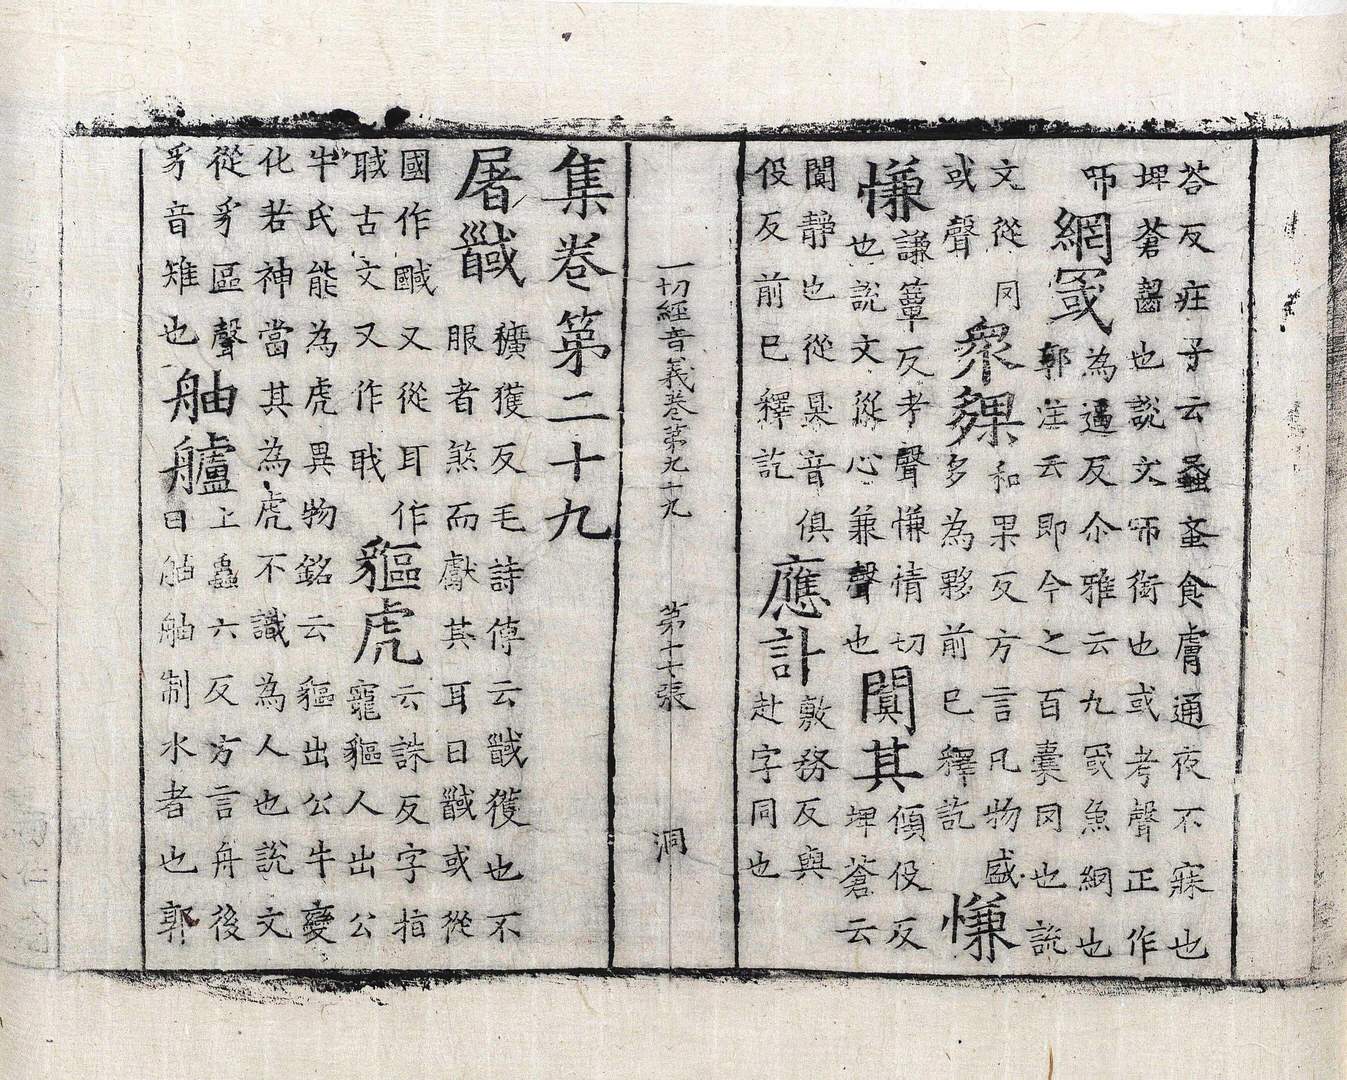 荅反疰子云蝱蚤食膚通夜不寐也
埤蒼齧也說文㗱銜也或考聲正作
㗱
網罭
為逼反尒雅云九罭魚網也
郭注云即今之百囊罔也說
文從罔
或聲
衆夥
和果反方言凡物盛
多為夥前已釋訖
慊
慊
謙簟反考聲慊情切
也說文從心兼聲也
闃其
傾伇反
埤蒼云
闃静也從狊音俱
伇反前已釋訖
應訃
敷務反與
赴字同也
一切經音義卷第九十九 第十七張 洞
集卷第二十九
屠馘
獷獲反毛詩傳云馘獲也不
服者煞而獻其耳曰馘或從
國作聝又從耳作
職古文又作戝
貙虎
云誅反字指
竉貙人出公
牛氏能為虎異物銘云貙出公牛變
化若神當其為虎不識為人也說文
從豸區聲
豸音雉也
舳艫
上蟲六反方言舟後
曰舳舳制水者也郭